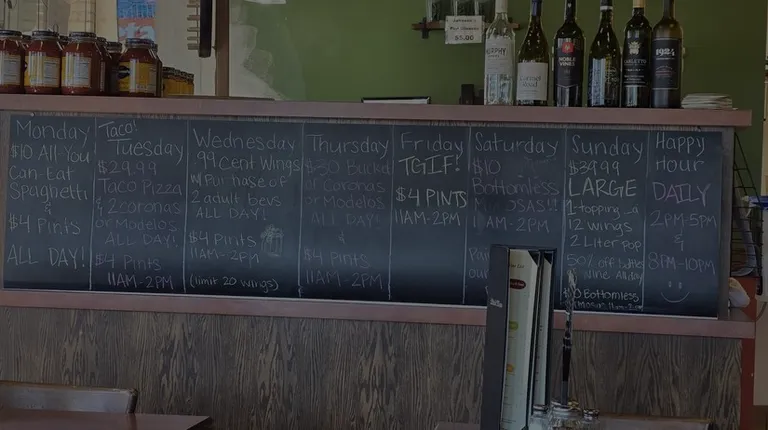 Monday
$10 All-You
Can-Eat
Spaghetti
&
$4 Pints
ALL DAY!
Taco!
Tuesday
$29.99
Taco Pizza
& 2 coronas
or Modelos
ALL DAY!
$4 Pints
11AM-2PM
Wednesday
99 Cent Wings
w/ Purchase of
2 adult bevs
ALL DAY!
$4 Pints
11AM-2PM
(limit 20 wings)
Thursday
Bucket
of Coronas
or Modelos
ALL DAY!
&
$4 Pints
11AM-2PM
Friday
TGIF!
$4 PINTS
11AM-2PM
Saturday
$10
Bottomless
11AM-2PM
Sunday
$39.99
LARGE
1-topping
12 wings
2 Liter pop
50% off bottle
wine
Bottomless
Happy
Hour
DAILY
2PM-5PM
&
8PM-10PM
$5.00
NOBLE
VINES
1924